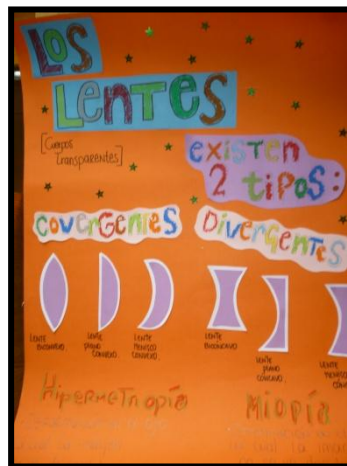 Los
Lentes
[Cuerpos
transparentes]
existen
2 tipos:
CovergenTes
DivergenTes
LENTE
BICONVEXO.
LENTE
PLANO
CONVEXO.
LENTE
MENISCO
CONVEXO.
LENTE
BICONCAVO
LENTE
PLANO
CÓNCAVO.
LENTE
MENISCO
Hipermetropía
Miopía